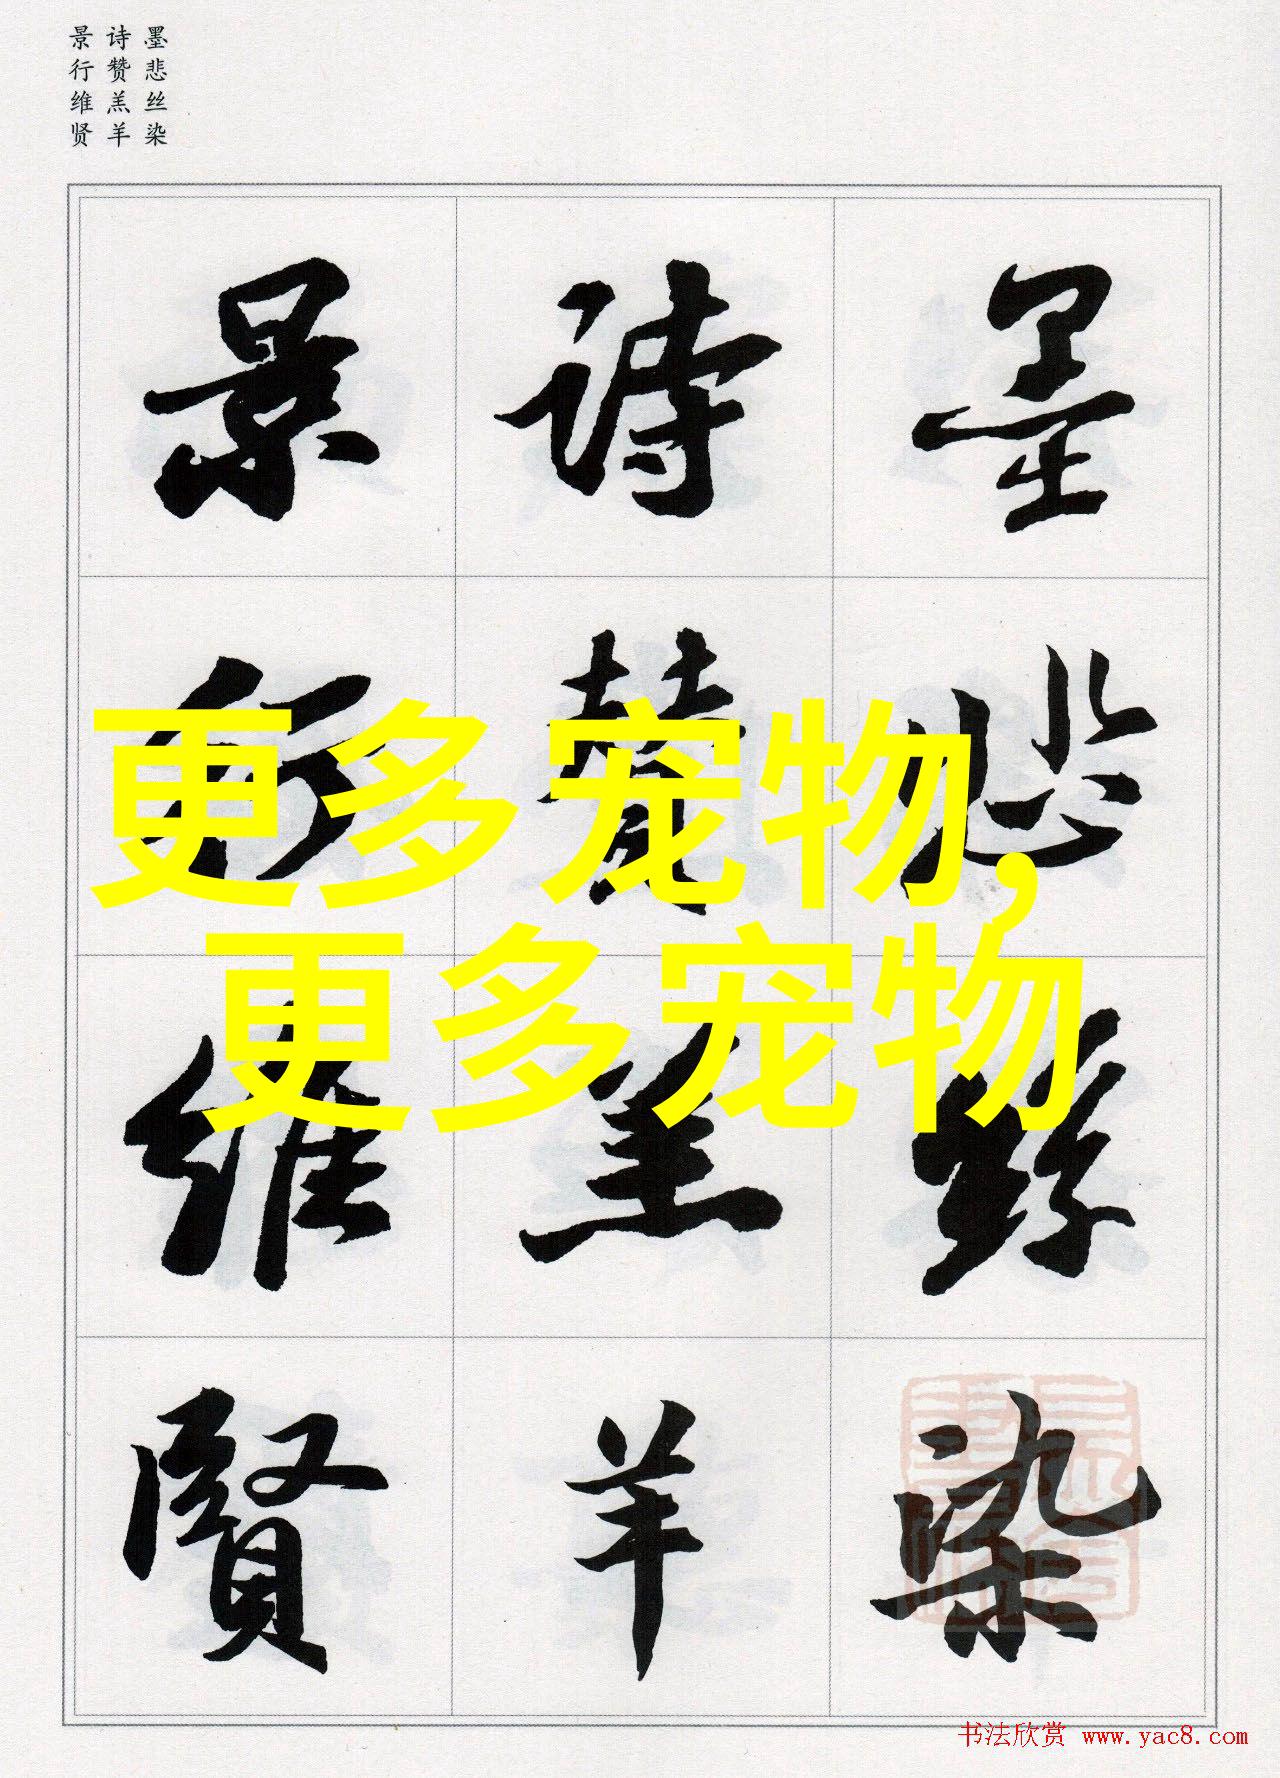 墨悲丝染
诗赞羔羊
景行维贤
墨悲絲染
詩贊羔羊
景行維賢
更多宠物，
更多宠物
书法欣赏 www.yac8.com